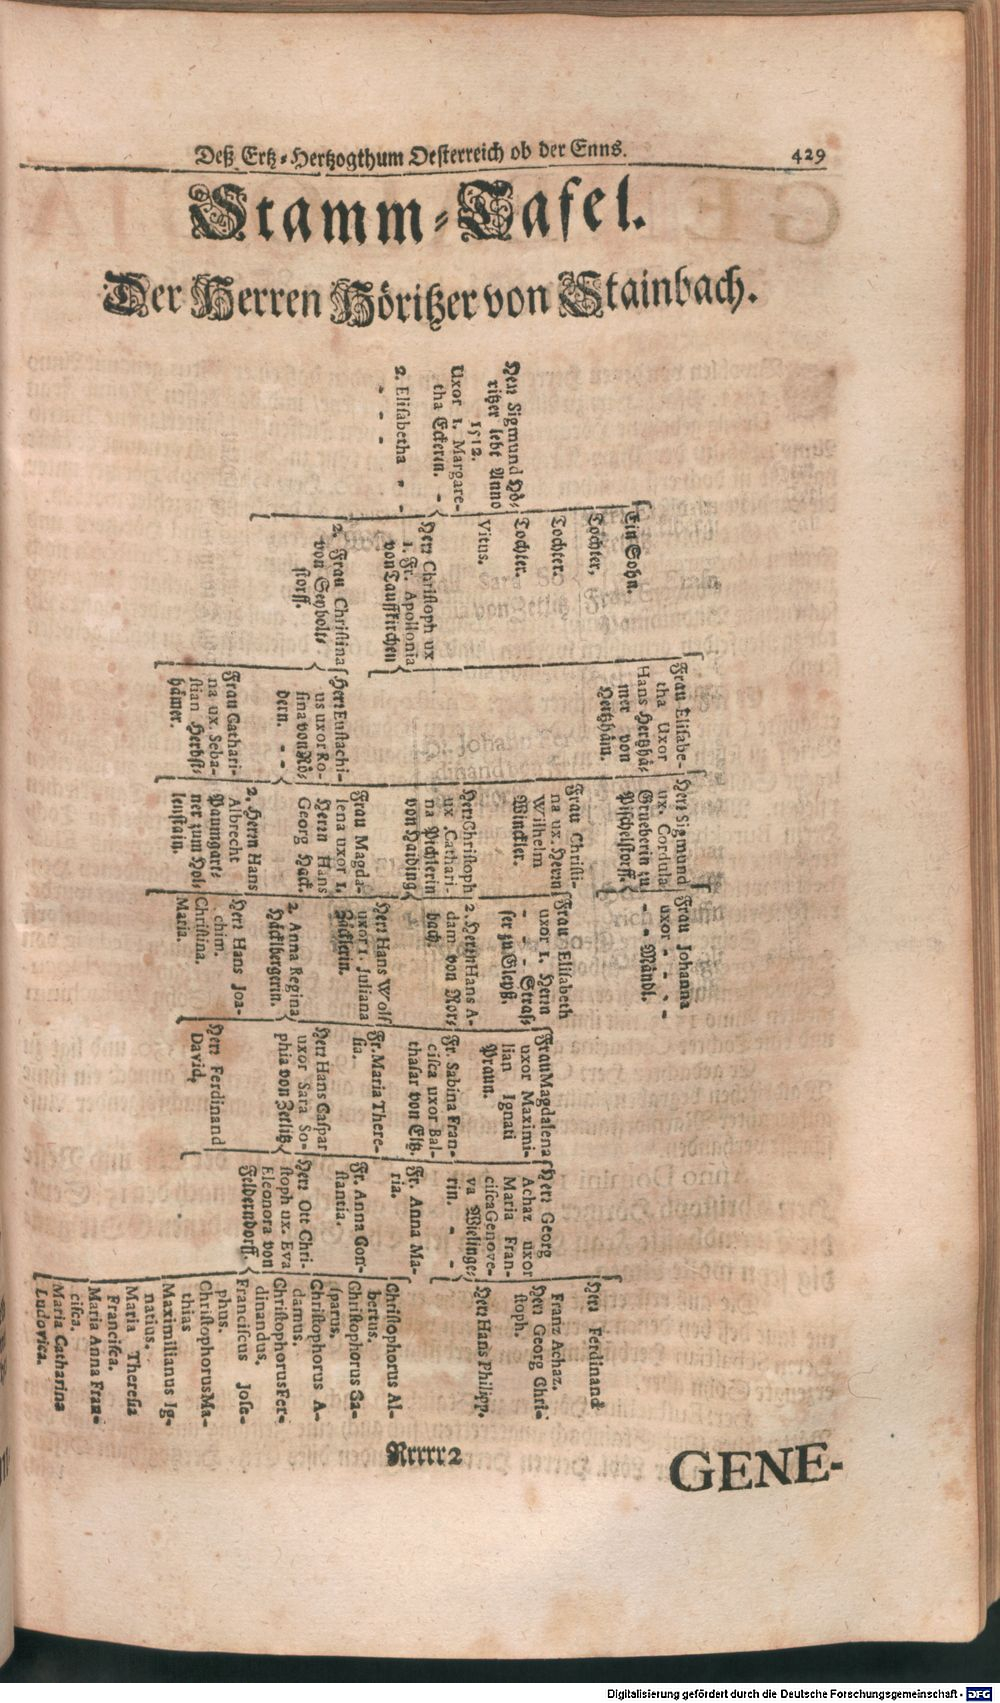 Deß Ertz-Hertzogthum Oesterreich ob der Enns.
429
Stamm-Tafel.
Der Herren Höritzer von Stainbach.
Herr Sigmund Hö-
ritzer lebt Anno
1512.
Uxor 1. Margare-
tha Eckerin. -
2. Elisabetha - -
- - -
Ein Sohn.
Tochter,
Tochter.
Tochter.
Vitus.
Herr Christoph ux
1. Fr. Apollonia
von Tauffkirchen
2. Frau Christina
von Seybolt-
storff.
Frau Elisabe-
tha Uxor
Hans Hertzhä-
mer von
Hertzhäm.
Herr Eustachi-
us uxor Ro-
sina von Rö-
dern. - -
Frau Cathari-
na ux. Seba-
stian Herbst-
hämer.
Herr Sigmund
ux. Cordula
Grueberin zu
Pischelstorff.
Frau Christi-
na ux. Herrn
Wilhelm
Winckler.
Herr Christoph
ux. Cathari-
na Pichlerin
von Haiding.
Frau Magda-
lena uxor 1.
Herrn Hans
Georg Hack.
2. Herrn Hans
Albrecht
Paumgart-
ner zum Hol-
lenstain.
Frau Johanna
uxor - - -
- - Mändl.
Frau Elisabeth
uxor 1. Herrn
- - Straß-
ser zu Gleyß.
2. Herrn Hans A-
dam von Ror-
bach.
Herr Hans Wolf
uxor 1. Juliana
Zäcklerin.
2. Anna Regina
Häcklbergerin.
Herr Hans Joa-
chim.
Christina.
Maria.
Frau Magdalena
uxor Maximi-
lian Ignati
Praun.
Fr. Sabina Fran-
cisca uxor Bal-
thasar von Eltz.
Fr. Maria There-
sia.
Herr Hans Caspar
uxor Sara So-
phia von Zetlitz.
Herr Ferdinand
David.
Herr Georg
Achaz uxor
Maria Fran-
cisca Genove-
va Wielinge-
rin. - -
Fr. Anna Ma-
ria.
Fr. Anna Con-
stantia.
Herr Ott Chri-
stoph ux. Eva
Eleonora von
Felderndorff.
Herr Ferdinand
Franz Achaz.
Herr Georg Chri-
stoph.
Herr Hans Philipp.
Christophorus Al-
bertus.
Christophorus Ga-
sparus.
Christophorus A-
damus.
Christophorus Fer-
dinandus.
Franciscus Jose-
phus.
Christophorus Ma-
thias
Maximilianus Ig-
natius.
Maria Theresia
Francisca.
Maria Anna Fran-
cisca.
Maria Catharina
Ludovica.
Rrrrr2
GENE-
Digitalisierung gefördert durch die Deutsche Forschungsgemeinschaft - DFG